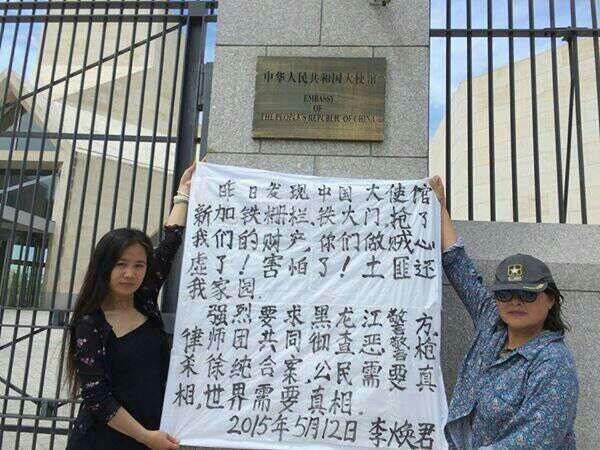 中华人民共和国大使馆
EMBASSY
OF
THE PEOPLE'S REPUBLIC OF CHINA
昨日发现中国大使馆
新加铁栅栏、铁大门抢了
我们的财产,你们做贼心
虛了!害怕了!土匪还
我家园.
强烈要求黑龙江警方,
律师团共同彻查恶警枪
杀徐纯合案,公民需要真
相,世界需要真相.
2015年5月12日 李焕君